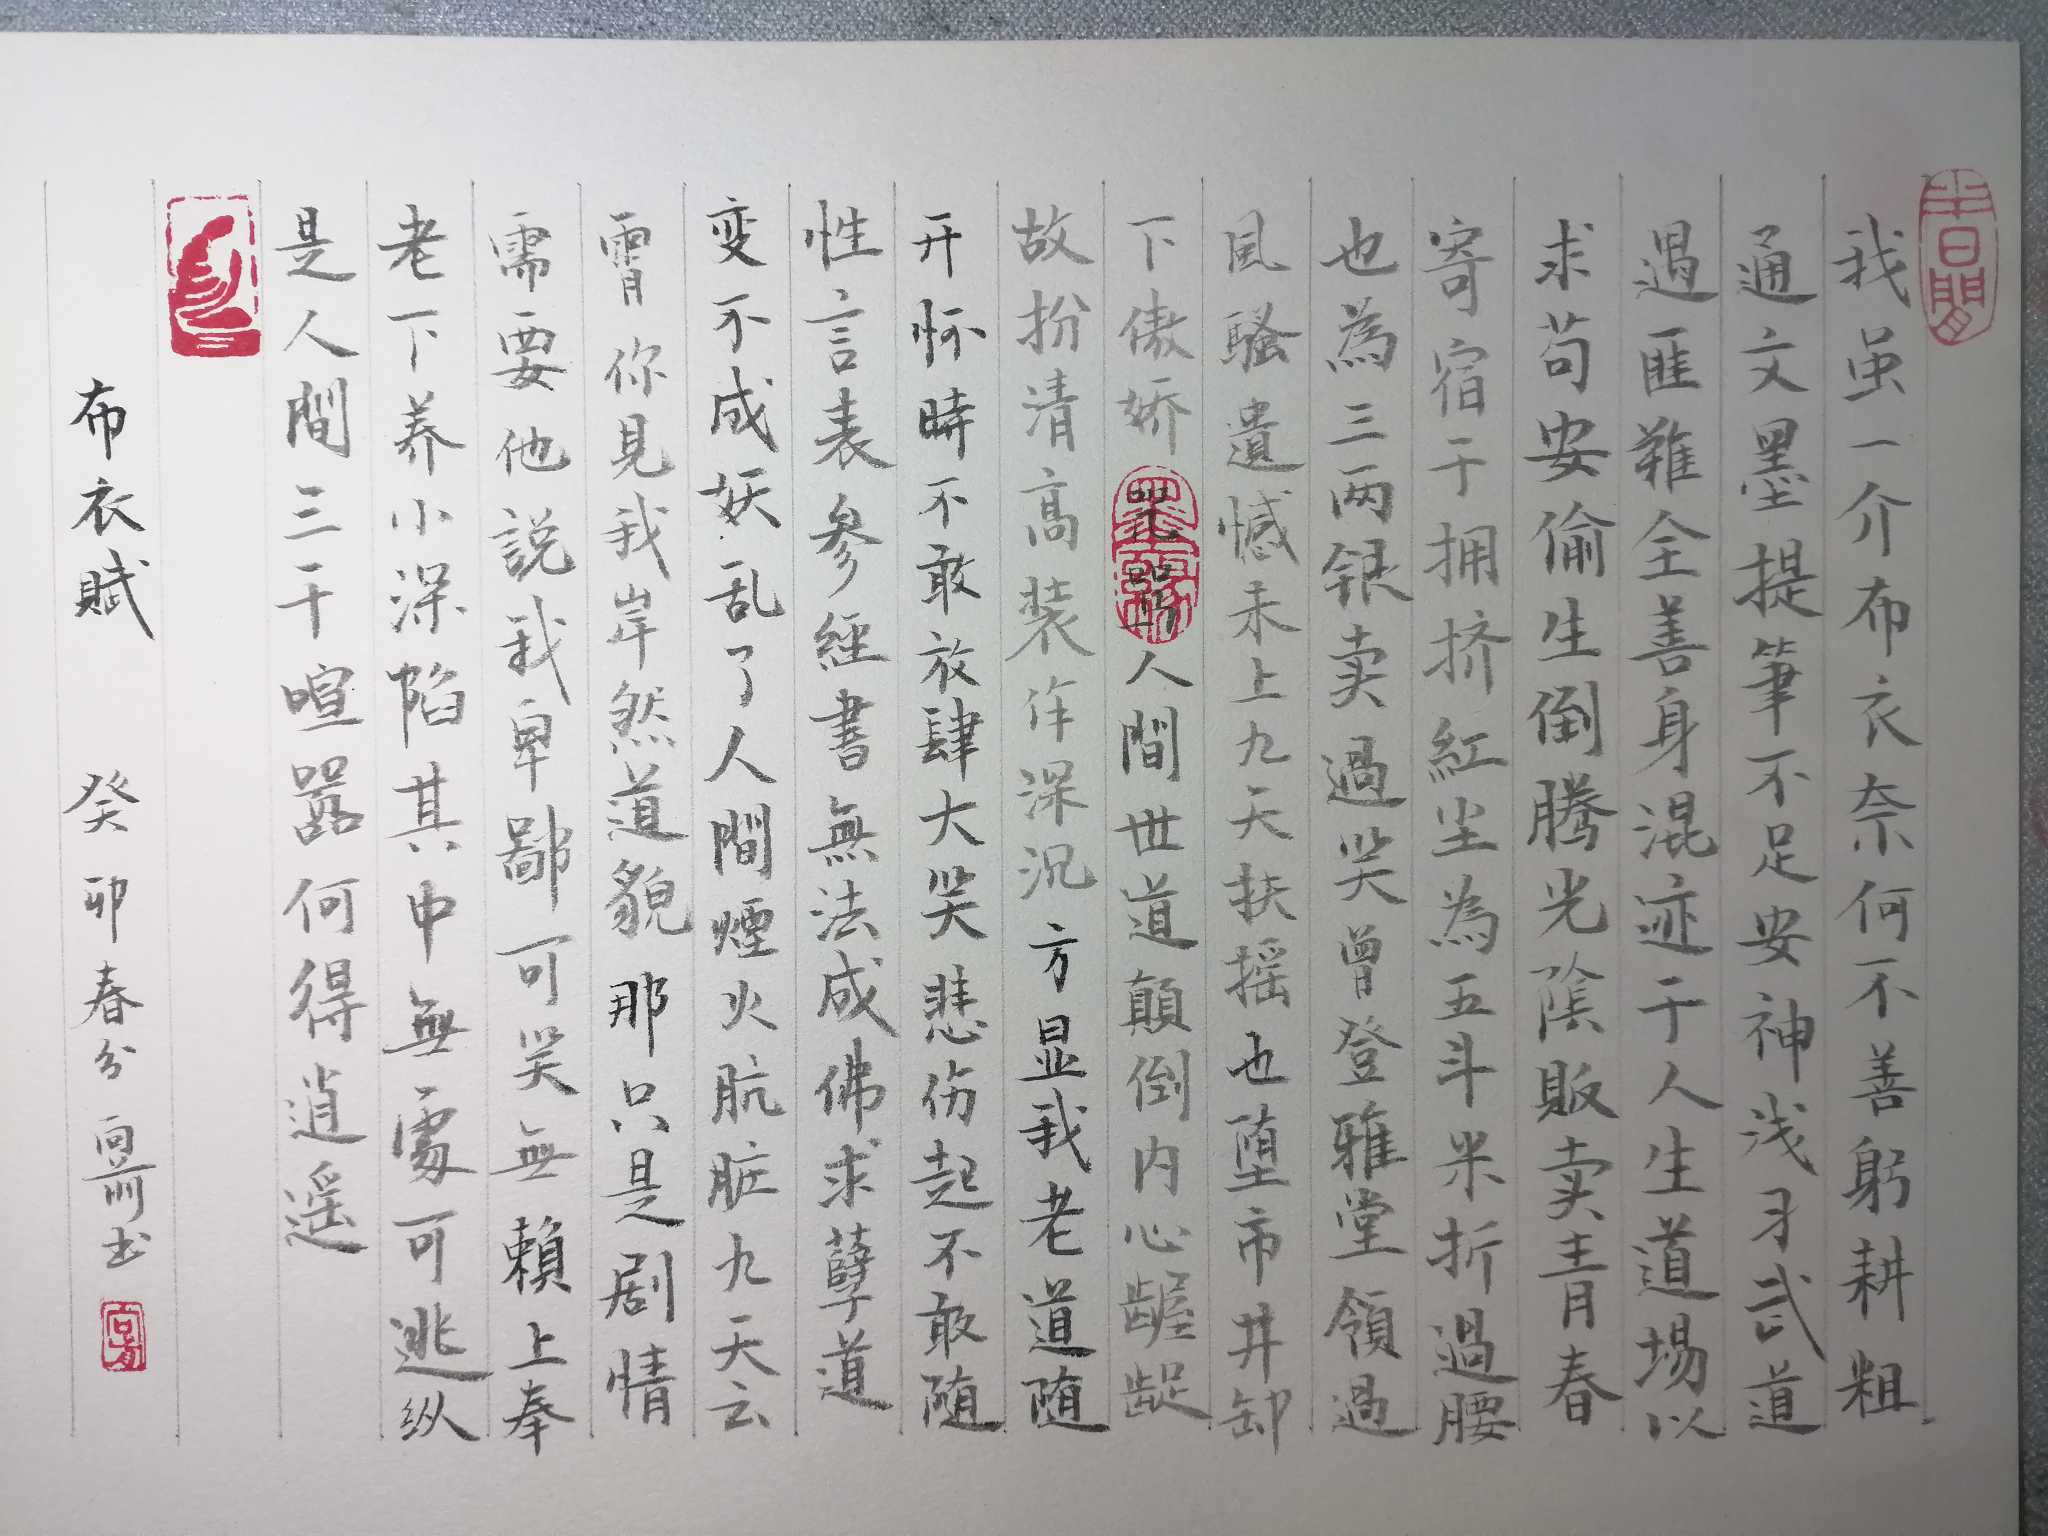 半日閒
我虽一介布衣奈何不善躬耕粗
通文墨提筆不足安神浅习武道
遇匪難全善身混迹于人生道場以
求苟安偷生倒腾光陰販卖青春
寄宿于拥挤紅尘為五斗米折過腰
也為三两银卖過笑曾登雅堂領過
風騷遺憾未上九天扶摇也堕市井卸
下傲娇咒骂人間世道顛倒内心龌龊
故扮清高装作深沉方显我老道随
开怀時不敢放肆大笑悲伤起不敢随
性言表参經書無法成佛求孽道
变不成妖乱了人間煙火肮脏九天云
霄你見我岸然道貌那只是剧情
需要他説我卑鄙可笑無賴上奉
老下养小深陷其中無處可逃纵
是人間三千喧嚣何得逍遥
布衣賦 癸卯春分 書